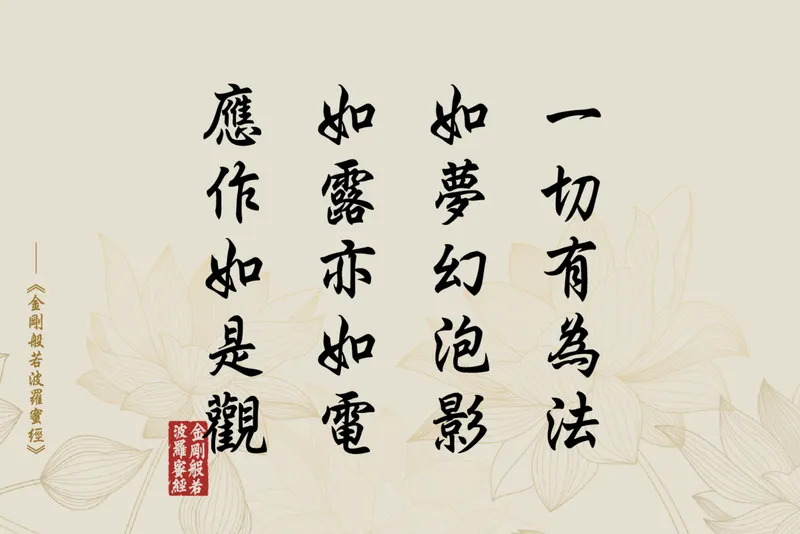 一切有為法
如夢幻泡影
如露亦如電
應作如是觀
——《金剛般若波羅蜜經》
金剛般若
波羅蜜經